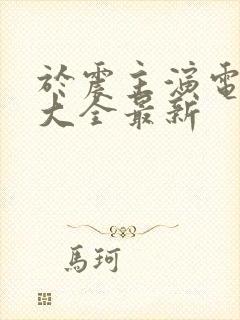 於震主演電
大全最新
馬珂